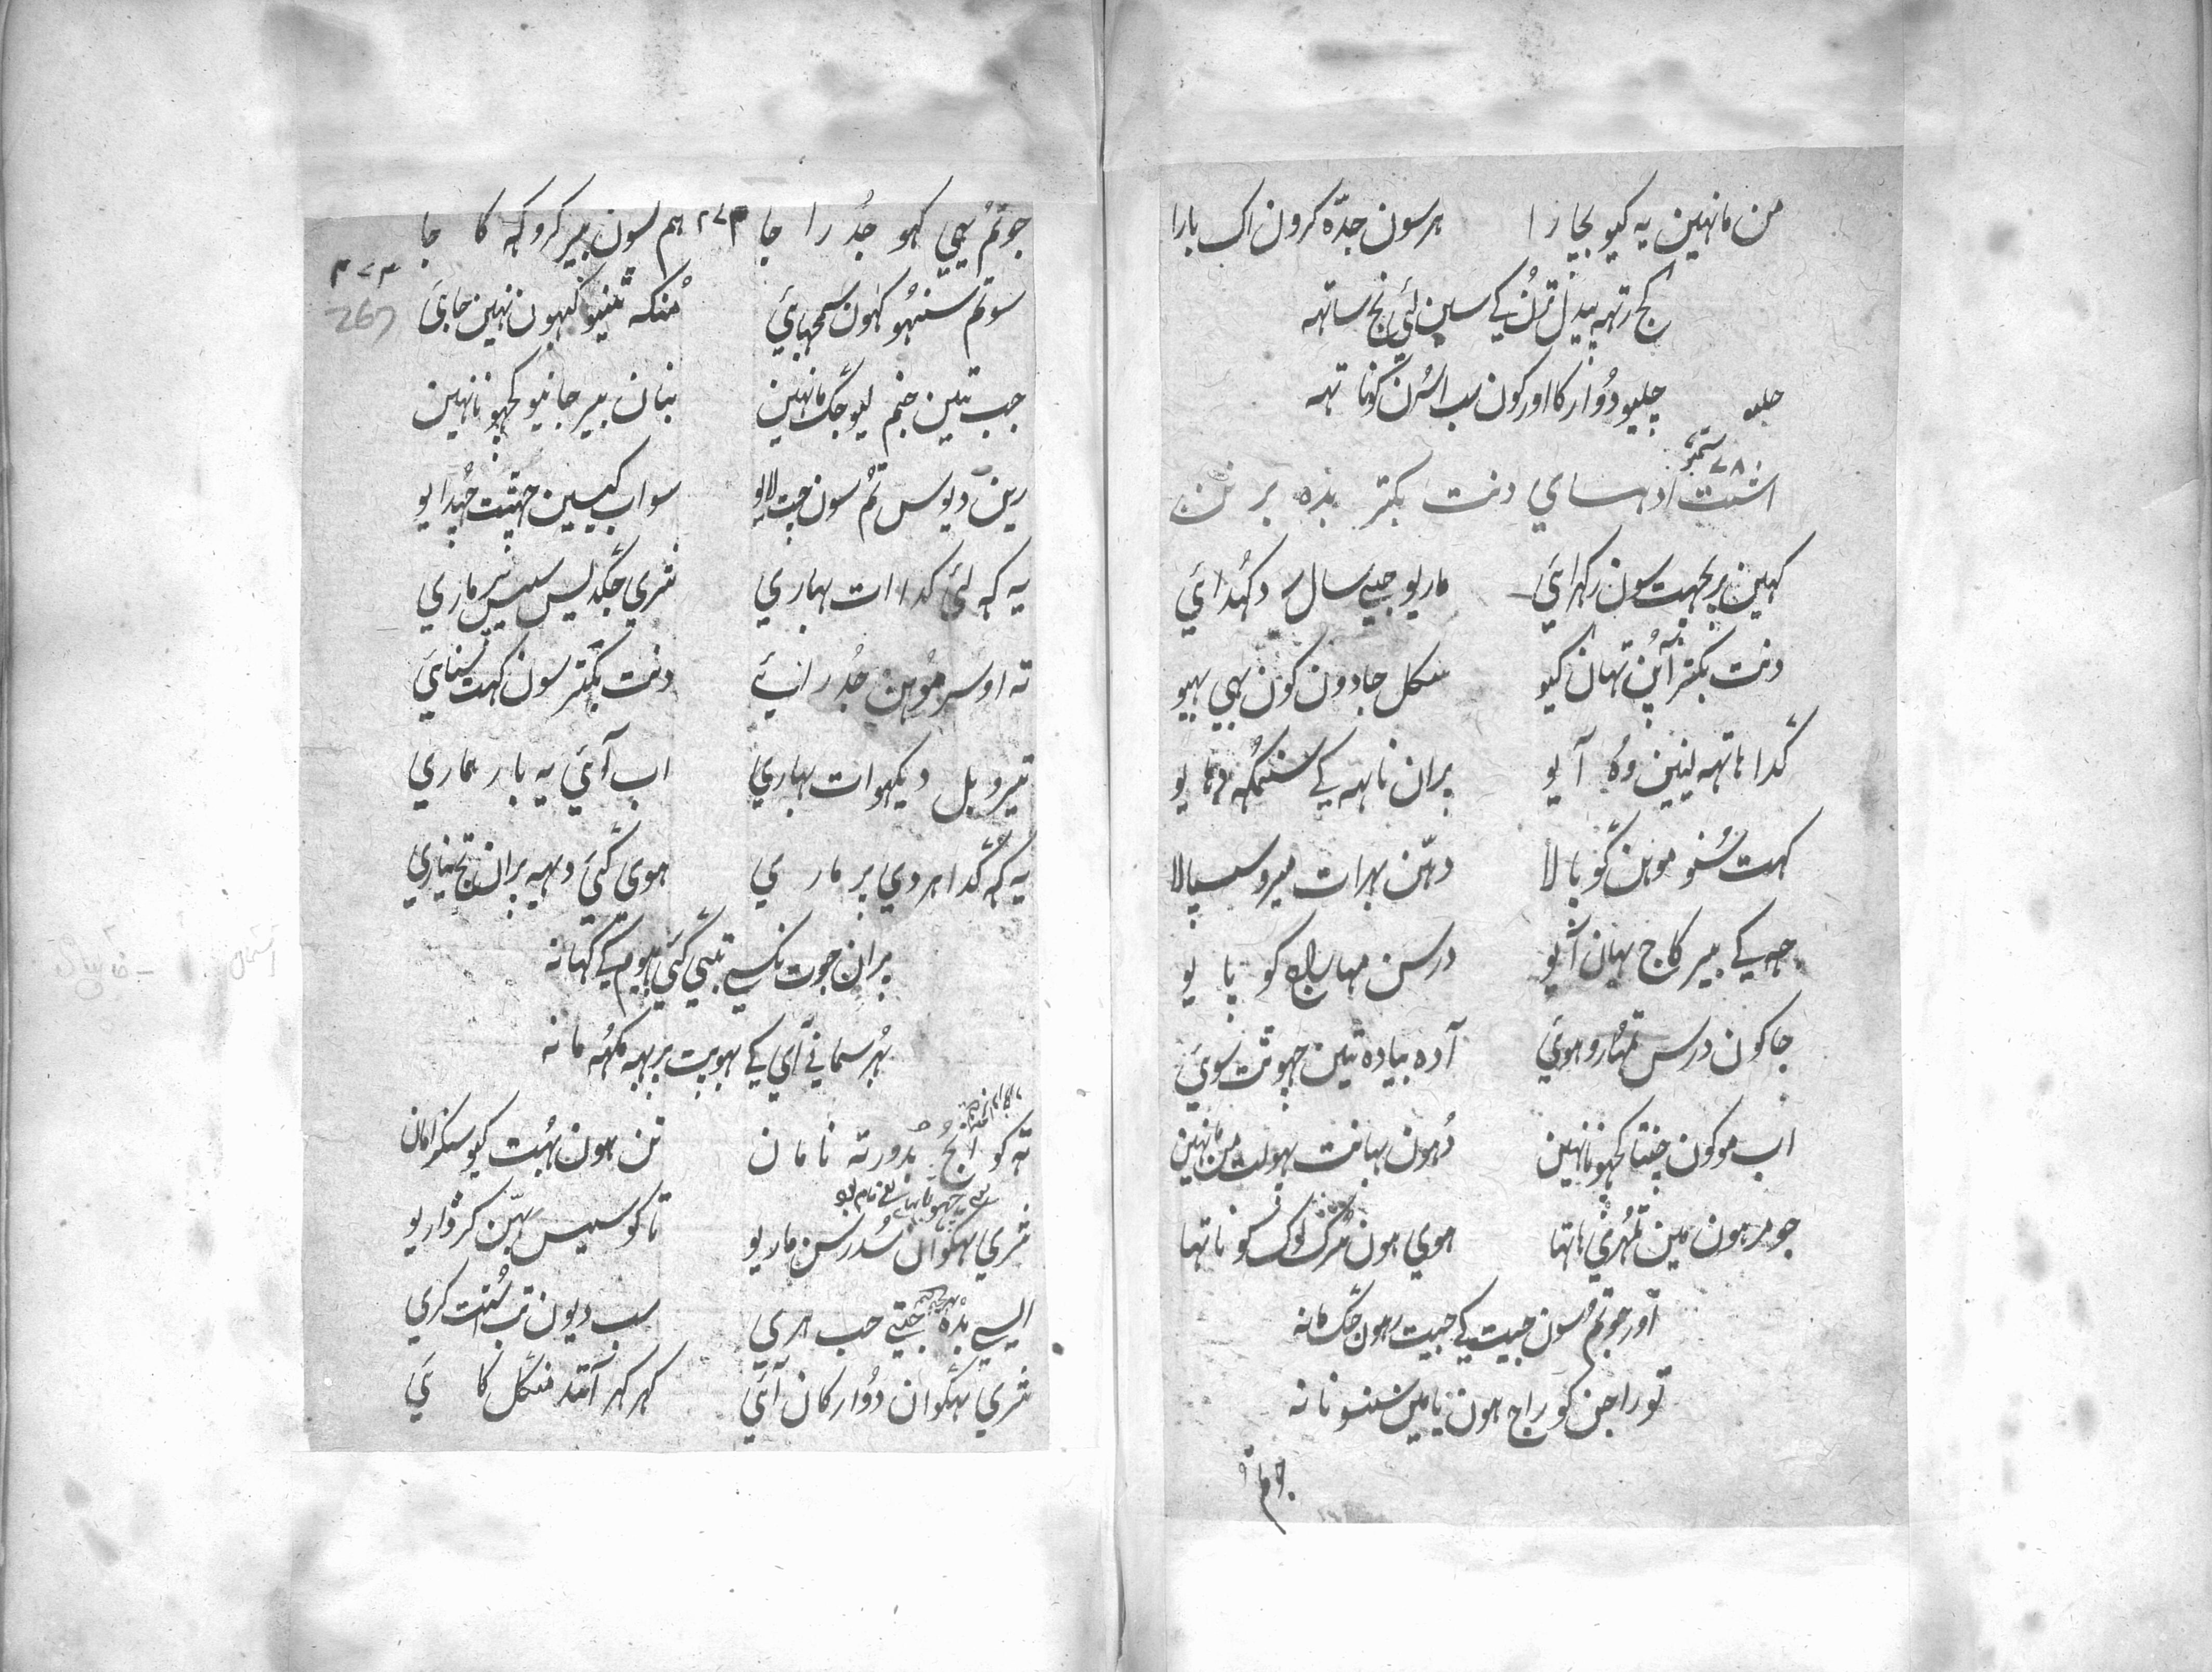 من مانہین یہ کیو بچارا ہر سون جدّہ کرون اک بارا
کج رتہہ پیدل ترُن کے سین لئی نج ساتہہ
چلیو دُوارکا اورکون سب اسُرن کو ناتہہ
چلیو
اشٹت ادہسای دنت بکتر بدہ برنن
کہین پریچہت سون رکہرائي ماریو جیسے سال دکہُدائي
دنت بکتر آپُن تہان کیو سکل جادون کون بہی بہیو
گدا ہاتہہ لینین وہُ آیو پران ناتہہ کے سنمکہہ دہایو
کہت سُنو موہن گوپالا دہنّ بہرات میرو سسپالا
جہہ کے بیر کاج یہان آیو درسن مہاراج کو پایو
جاکون درس تمہارو ہوئي آدہ بیادہ تین چہوٹت سوئي
اب موکون چنتا کچہو نانہین دُہون بہانت بہولت من مانہین
جو مرہون مین تمُہرئي ہاتہا ہوی ہون سُرگ لوک کو ناتہا
اور جو تم سون جیت کے جیت رہون جگ مانہ
تو راجن کو راج ہون یا مین سنسو نانہ
جو تم
جو تُم یہی کہو جدُراجا ہم سون بیر کرو کہہ کاجا
۴۷۴
267
سو تم سنہُو کہَون سمجہائي مُنکہ تینیو کبہون نہین جائي
جب تین جنم لیو جگ مانہین بنان بیر جانیو کچہو نانہین
رین دیوس تم سون چت لایو سو اب کیسین جہت چہُدایو
یہ کہ لئی گدا ات بہاری شری جگدیس سیس پر ماری
تہ اوسر موہن جدُرائي دنت بکتر سون کہت سنائي
تیرو بل دیکہو ات بہاری اب آئي یہ بار ہماری
یہ کہہ گدا ہردی پر ماری ہوی گئی دیہہ پران تج نیاری
پران جوت نکسی تبَی گئی بیوم کے کہانہ
بہُر سمانی آئي کے بہوپت پربہہ مکہہ مانہ
تہ کو انُج بدُورتہ نامان تن ہون بہُت کیو سنگرامان
شری بہگوان سُدرسن ماریو تاکو سیس بہنّ کر ڈاریو
ایسے بدُہ جیتے جب ہری سب دیون تب استُت کری
شری بہگوان دُوارکان آئي گہر گہر آنند منگل گائي